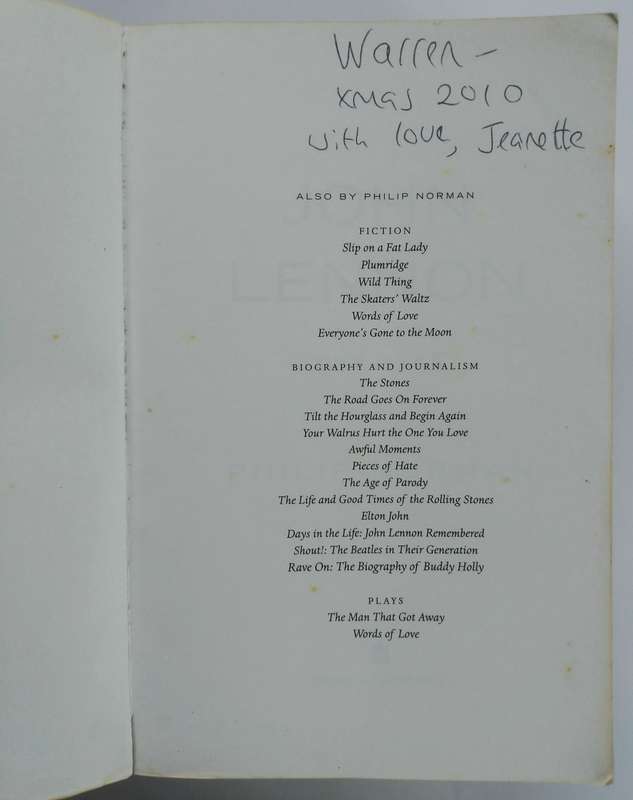 Warren –
xmas 2010
with love, Jeanette
ALSO BY PHILIP NORMAN
FICTION
Slip on a Fat Lady
Plumridge
Wild Thing
The Skaters' Waltz
Words of Love
Everyone's Gone to the Moon
BIOGRAPHY AND JOURNALISM
The Stones
The Road Goes On Forever
Tilt the Hourglass and Begin Again
Your Walrus Hurt the One You Love
Awful Moments
Pieces of Hate
The Age of Parody
The Life and Good Times of the Rolling Stones
Elton John
Days in the Life: John Lennon Remembered
Shout!: The Beatles in Their Generation
Rave On: The Biography of Buddy Holly
PLAYS
The Man That Got Away
Words of Love